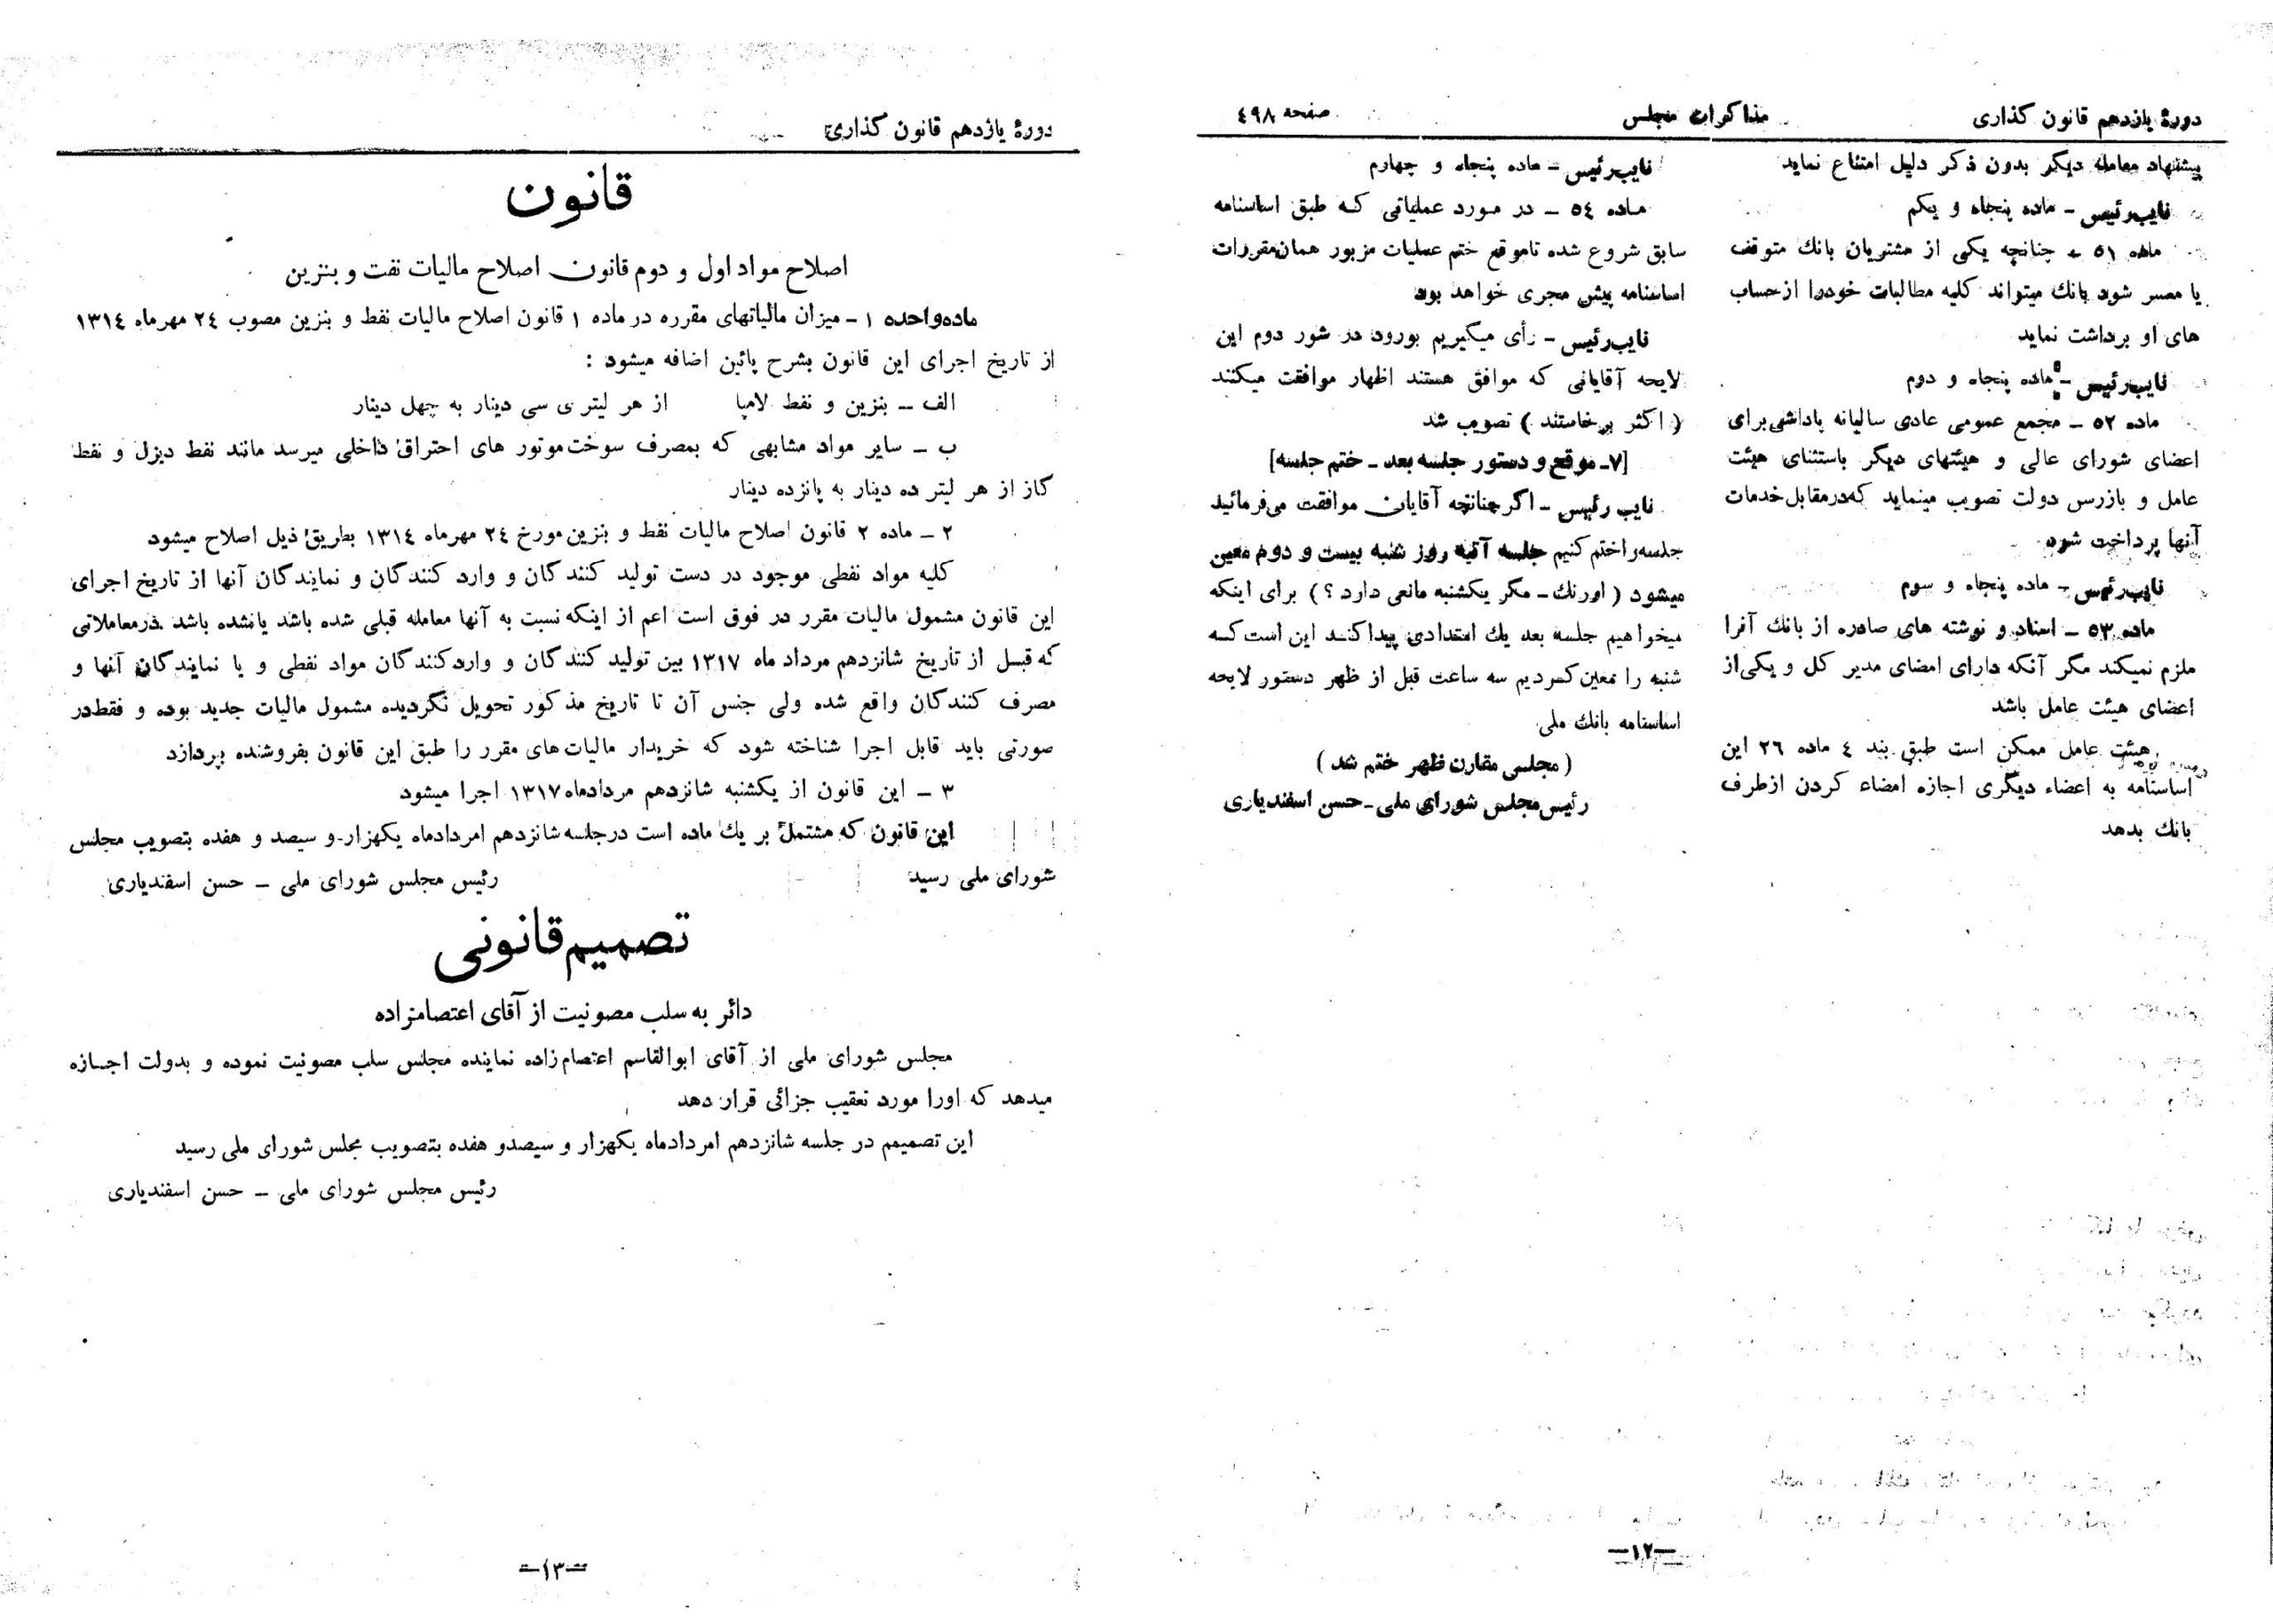 دورهٔ یازدهم قانون گذاری
مذاکرات مجلس
صفحه ٤٩٨
پیشنهاد معامله دیگر بدون ذکر دلیل امتناع نماید
نایب‌رئیس - ماده پنجاه و یکم
ماده ٥١ - چنانچه یکی از مشتریان بانك متوقف
یا معسر شود بانك میتواند کلیه مطالبات خودرا ازحساب
های او برداشت نماید
نایب‌رئیس - ماده پنجاه و دوم
ماده ٥٢ - مجمع عمومی عادی سالیانه پاداشی برای
اعضای شورای عالی و هیئتهای دیگر باستثنای هیئت
عامل و بازرس دولت تصویب مینماید که‌درمقابل خدمات
آنها پرداخت شود
نایب‌رئیس - ماده پنجاه و سوم
ماده ٥٣ - اسناد و نوشته های صادره از بانك آنرا
ملزم نمیکند مگر آنکه دارای امضای مدیر کل و یکی‌از
اعضای هیئت عامل باشد
هیئت عامل ممکن است طبق بند ٤ ماده ٢٦ این
اساسنامه به اعضاء دیگری اجازه امضاء کردن ازطرف
بانك بدهد
نایب‌رئیس - ماده پنجاه و چهارم
ماده ٥٤ - در مورد عملیاتی که طبق اساسنامه
سابق شروع شده تاموقع ختم عملیات مزبور همان‌مقررات
اساسنامه پیش مجری خواهد بود
نایب‌رئیس - رأی میگیریم بورود در شور دوم این
لایحه آقایانی که موافق هستند اظهار موافقت میکنند
( اکثر برخاستند ) تصویب شد
[٧- موقع و دستور جلسه بعد - ختم جلسه]
نایب رئیس - اگر چنانچه آقایان موافقت می‌فرمائید
جلسه‌را ختم کنیم جلسه آتیه روز شنبه بیست و دوم معین
میشود ( اورنك - مگر یکشنبه مانعی دارد ؟ ) برای اینکه
میخواهیم جلسه بعد یك امتدادی پیدا کند این است که
شنبه را معین کردیم سه ساعت قبل از ظهر دستور لایحه
اساسنامه بانك ملی
( مجلس مقارن ظهر ختم شد )
رئیس مجلس شورای ملی - حسن اسفندیاری
—١٢—
دورهٔ یازدهم قانون گذاری
قانون
اصلاح مواد اول و دوم قانون اصلاح مالیات نفت و بنزین
ماده‌واحده ١ - میزان مالیاتهای مقرره در ماده ١ قانون اصلاح مالیات نفط و بنزین مصوب ٢٤ مهرماه ١٣١٤
از تاریخ اجرای این قانون بشرح پائین اضافه میشود :
الف - بنزین و نفط لامپا از هر لیتری سی دینار به چهل دینار
ب - سایر مواد مشابهی که بمصرف سوخت موتور های احتراق داخلی میرسد مانند نفط دیزل و نفط
گاز از هر لیتر ده دینار به پانزده دینار
٢ - ماده ٢ قانون اصلاح مالیات نفط و بنزین مورخ ٢٤ مهرماه ١٣١٤ بطریق ذیل اصلاح میشود
کلیه مواد نفطی موجود در دست تولید کنندگان و وارد کنندگان و نمایندگان آنها از تاریخ اجرای
این قانون مشمول مالیات مقرر در فوق است اعم از اینکه نسبت به آنها معامله قبلی شده باشد یانشده باشد درمعاملاتی
که قبل از تاریخ شانزدهم مرداد ماه ١٣١٧ بین تولید کنندگان و واردکنندگان مواد نفطی و یا نمایندگان آنها و
مصرف کنندگان واقع شده ولی جنس آن تا تاریخ مذکور تحویل نگردیده مشمول مالیات جدید بوده و فقط‌در
صورتی باید قابل اجرا شناخته شود که خریدار مالیات های مقرر را طبق این قانون بفروشنده بپردازد
٣ - این قانون از یکشنبه شانزدهم مردادماه ١٣١٧ اجرا میشود
این قانون که مشتمل بر یك ماده است درجلسه شانزدهم امردادماه یکهزار و سیصد و هفده بتصویب مجلس
شورای ملی رسید رئیس مجلس شورای ملی - حسن اسفندیاری
تصمیم قانونی
دائر به سلب مصونیت از آقای اعتصامزاده
مجلس شورای ملی از آقای ابوالقاسم اعتصام‌زاده نماینده مجلس سلب مصونیت نموده و بدولت اجازه
میدهد که اورا مورد تعقیب جزائی قرار دهد
این تصمیم در جلسه شانزدهم امردادماه یکهزار و سیصدو هفده بتصویب مجلس شورای ملی رسید
رئیس مجلس شورای ملی - حسن اسفندیاری
—١٣—